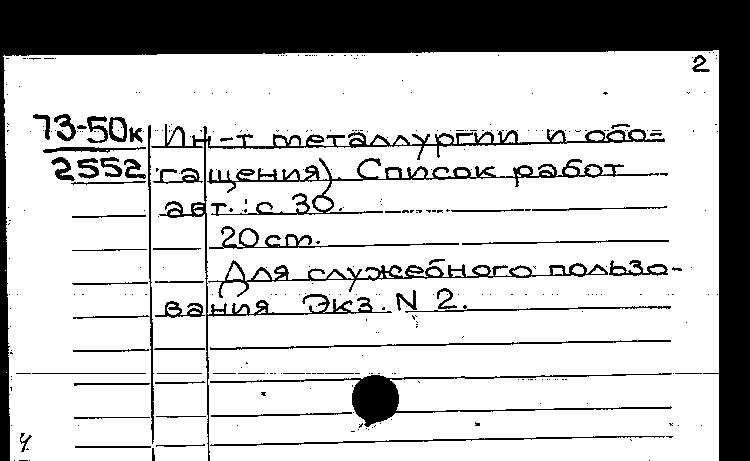 2
73-50к Ин-т металлургии и обо=
2552 гащения). Список работ
авт.: с. 30.
20 cm.
Для служебного пользо-
вания Экз. N 2.
ч.